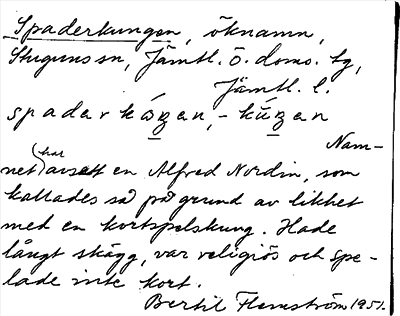 Spaderkungen, öknamn,
Stuguns sn, Jämtl. ö. doms. tg,
Jämtl. l.
spadarkọ́ŋen, -kúŋen
Nam-
net har avsett en Alfred Nordin, som
kallades så på grund av likhet
med en kortspelskung. Hade
långt skägg, var religiös och spe-
lade inte kort.
Bertil Flemström 1951.